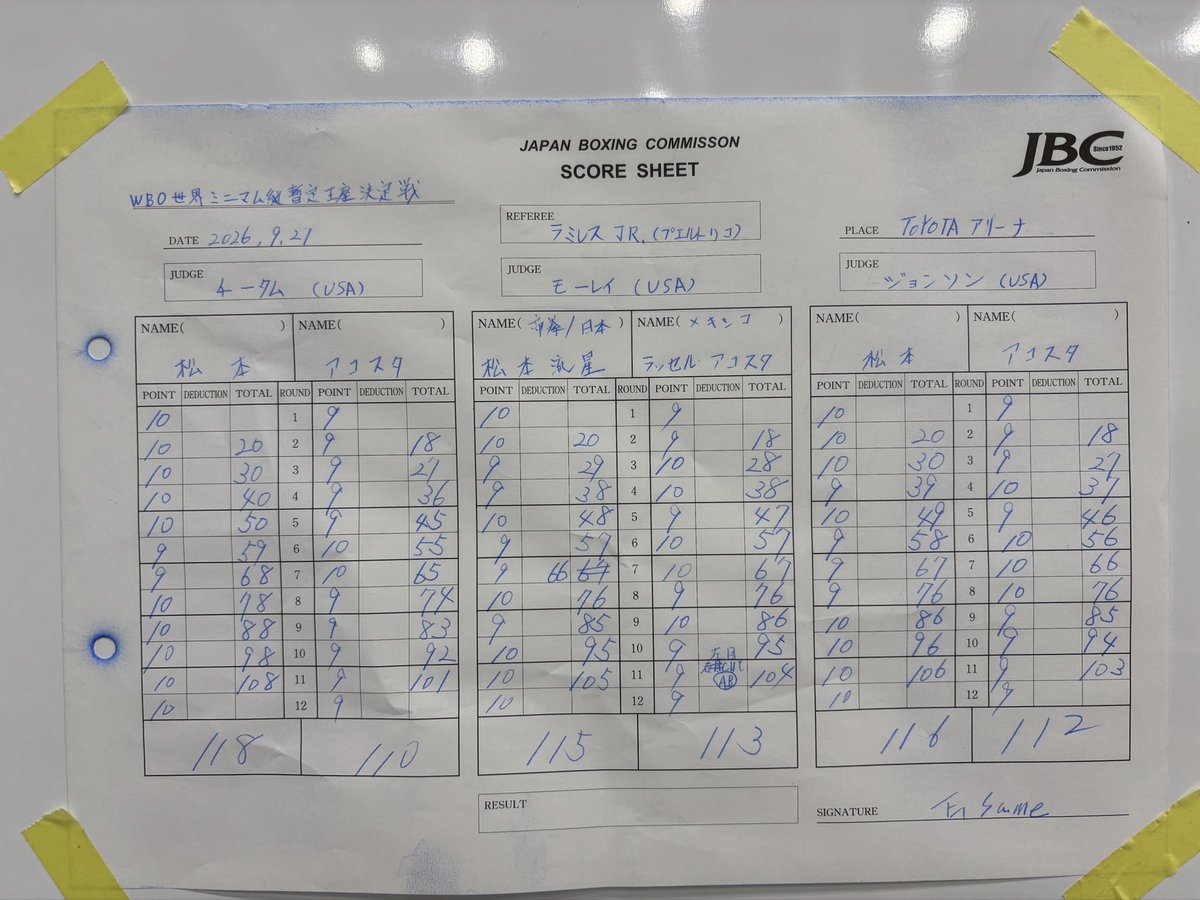 JAPAN BOXING COMMISSON
SCORE SHEET
JBC Since1952
Japan Boxing Commission
WBO世界ミニマム級暫定王座決定戦
DATE 2026.9.21
REFEREE
ラミレス JR.(プエルトリコ)
PLACE TOYOTA アリーナ
JUDGE
チータム (USA)
JUDGE
モーレイ (USA)
JUDGE
ジョンソン (USA)
NAME( ) NAME( ) NAME( 帝拳/日本 ) NAME( メキシコ ) NAME( ) NAME( )
松本 アコスタ 松本流星 ラッセル・アコスタ 松本 アコスタ
POINT DEDUCTION TOTAL ROUND POINT DEDUCTION TOTAL POINT DEDUCTION TOTAL ROUND POINT DEDUCTION TOTAL POINT DEDUCTION TOTAL ROUND POINT DEDUCTION TOTAL
10 1 9 10 1 9 10 1 9
10 20 2 9 18 10 20 2 9 18 10 20 2 9 18
10 30 3 9 27 9 29 3 10 28 10 30 3 9 27
10 40 4 9 36 9 38 4 10 38 9 39 4 10 37
10 50 5 9 45 10 48 5 9 47 10 49 5 9 46
9 59 6 10 55 9 57 6 10 57 9 58 6 10 56
9 68 7 10 65 9 66 67 7 10 67 9 67 7 10 66
10 78 8 9 74 10 76 8 9 76 9 76 8 10 76
10 88 9 9 83 9 85 9 10 86 10 86 9 9 85
10 98 10 9 92 10 95 10 9 95 10 96 10 9 94
10 108 11 9 101 10 105 11 9 左目 AB 104 10 106 11 9 103
10 12 9 10 12 9 10 12 9
118 110 115 113 116 112
RESULT
SIGNATURE